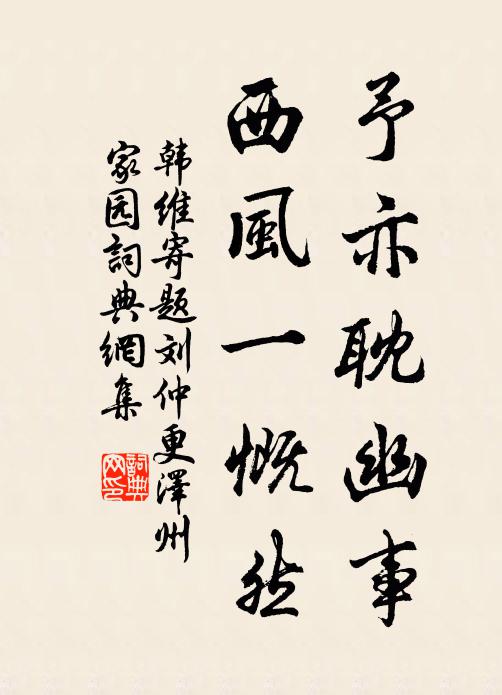 予亦耽幽事
西風一慨然
韩維寄题刘仲更澤州
家园詞典網集
詞典网印